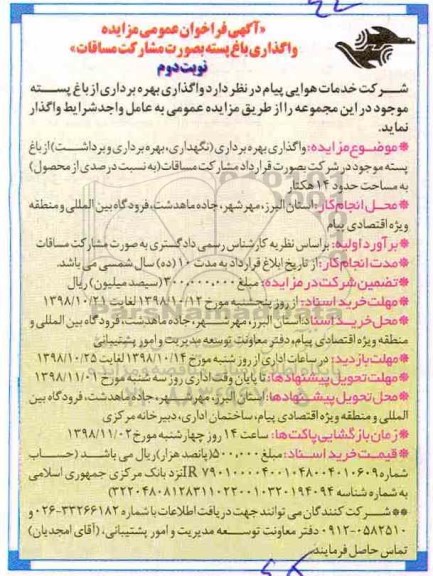 «آگهی فراخوان عمومی مزایده
واگذاری باغ پسته بصورت مشارکت مساقات»
نوبت دوم
شرکت خدمات هوایی پیام در نظر دارد واگذاری بهره برداری از باغ پسته
موجود در این مجموعه را از طریق مزایده عمومی به عامل واجد شرایط واگذار
نماید.
*موضوع مزایده: واگذاری بهره برداری (نگهداری، بهره برداری و برداشت) از باغ
پسته موجود در شرکت بصورت قرارداد مشارکت مساقات (به نسبت درصدی از محصول)
به مساحت حدود ۱۴ هکتار
*محل انجام کار: استان البرز، مهرشهر، جاده ماهدشت، فرودگاه بین المللی و منطقه
ویژه اقتصادی پیام
*برآورد اولیه: براساس نظریه کارشناس رسمی دادگستری به صورت مشارکت مساقات
*مدت انجام کار: از تاریخ ابلاغ قرارداد به مدت ۱۰ (ده) سال شمسی می باشد.
*تضمین شرکت در مزایده: مبلغ ۳۰۰,۰۰۰,۰۰۰ (سیصد میلیون) ریال
*مهلت خرید اسناد: از روز پنجشنبه مورخ ۱۳۹۸/۱۰/۱۲ لغایت ۱۳۹۸/۱۰/۲۱
*محل خرید اسناد: استان البرز، مهرشهر، جاده ماهدشت، فرودگاه بین المللی و
منطقه ویژه اقتصادی پیام، دفتر معاونت توسعه مدیریت و امور پشتیبانی
*مهلت بازدید: در ساعات اداری از روز شنبه مورخ ۱۳۹۸/۱۰/۱۴ لغایت ۱۳۹۸/۱۰/۲۵
*مهلت تحویل پیشنهادها: تا پایان وقت اداری روز سه شنبه مورخ ۱۳۹۸/۱۱/۰۱
*محل تحویل پیشنهادها: استان البرز، مهرشهر، جاده ماهدشت، فرودگاه بین
المللی و منطقه ویژه اقتصادی پیام، ساختمان اداری، دبیرخانه مرکزی
*زمان بازگشایی پاکت ها: ساعت ۱۴ روز چهارشنبه مورخ ۱۳۹۸/۱۱/۰۲
*قیمت خرید اسناد: مبلغ ۵۰۰,۰۰۰ (پانصد هزار) ریال می باشد (حساب
شماره IR۷۹۰۱۰۰۰۰۴۰۰۱۰۴۸۰۰۴۰۱۰۶۰۹ نزد بانک مرکزی جمهوری اسلامی
به شماره شناسه ۳۲۲۰۴۸۰۸۱۲۸۳۱۱۰۲۲۰۰۱۰۳۲۰۱۹۴۰۹۴)
**شرکت کنندگان می توانند جهت دریافت اطلاعات با شماره ۳۳۲۶۶۱۸۲-۰۲۶ و
۰۹۱۲-۰۵۸۲۵۱۰ دفتر معاونت توسعه مدیریت و امور پشتیبانی، (آقای امجدیان)
تماس حاصل فرمایند.